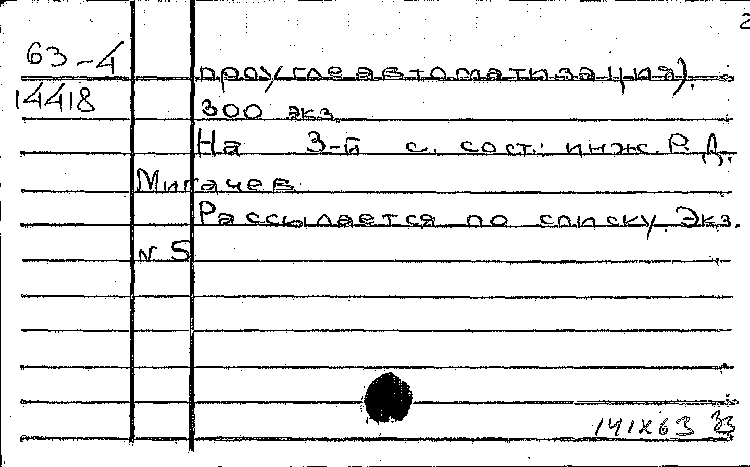 2
63-4
14418
проуглеавтоматизация).
300 экз.
На 3-й с. сост.: инж. Р. Д.
Мигачев.
Рассылается по списку. Экз.
N 5
141X63